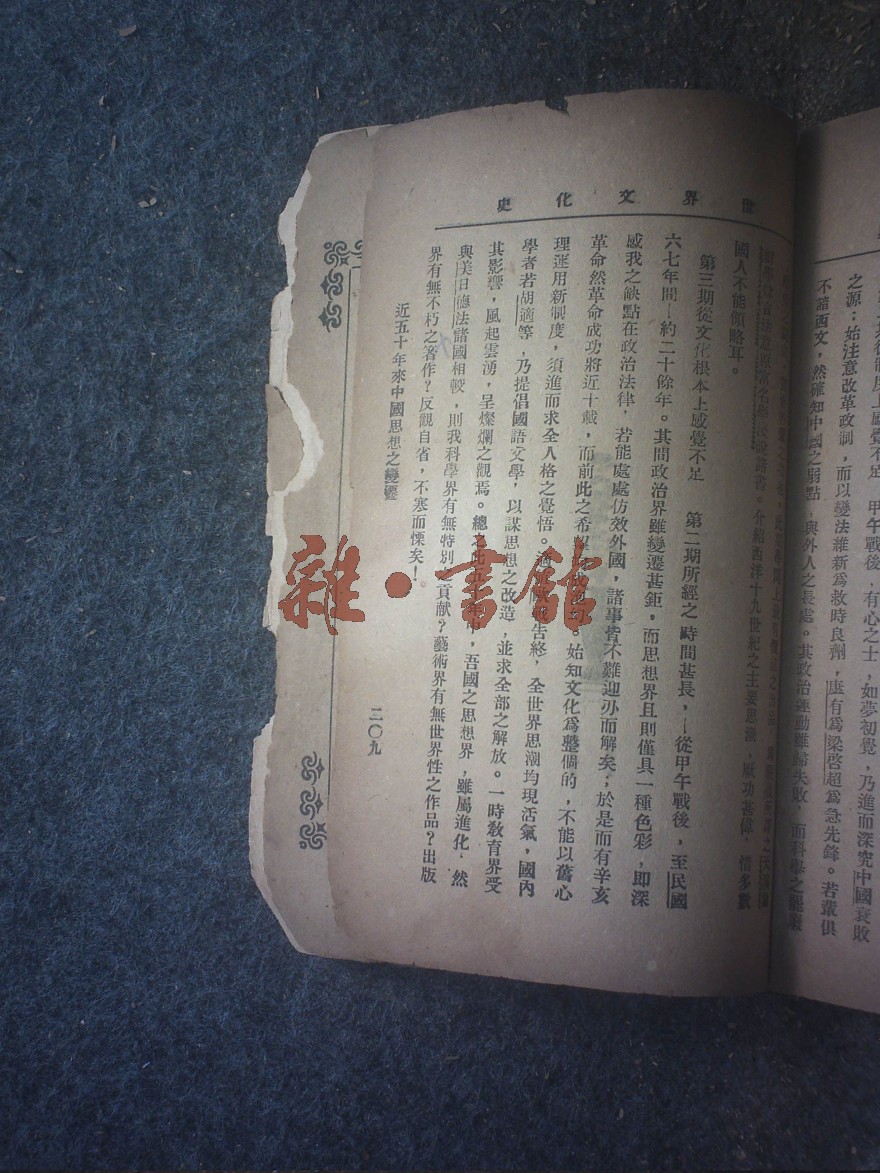 世界文化史
之源；始注意改革政制，而以變法維新爲救時良劑，康有爲梁啓超爲急先鋒。若輩俱
不諳西文，然確知中國之弱點，與外人之長處。其政治運動雖歸失敗，而科舉之
介紹西洋十九世紀之主要思潮，厥功甚偉，惜多數
國人不能領略耳。
第三期從文化根本上感覺不足 第二期所經之時間甚長，—從甲午戰後，至民國
六七年間—約二十餘年。其間政治界雖變遷甚鉅，而思想界且則僅具一種色彩，即深
感我之缺點在政治法律，若能處處仿效外國，諸事皆不難迎刃而解矣；於是而有辛亥
革命然革命成功將近十載，而前此之希 始知文化爲整個的，不能以舊心
理運用新制度，須進而求全人格之覺悟。 告終，全世界思潮均現活氣，國內
學者若胡適等，乃提倡國語文學，以謀思想之改造，並求全部之解放。一時教育界受
其影響，風起雲湧，呈燦爛之觀焉。總之此五 年中，吾國之思想界，雖屬進化，然
與美日德法諸國相較，則我科學界有無特別之貢獻？藝術界有無世界性之作品？出版
界有無不朽之著作？反觀自省，不寒而慄矣！
近五十年來中國思想之變遷
二〇九
雜·書館